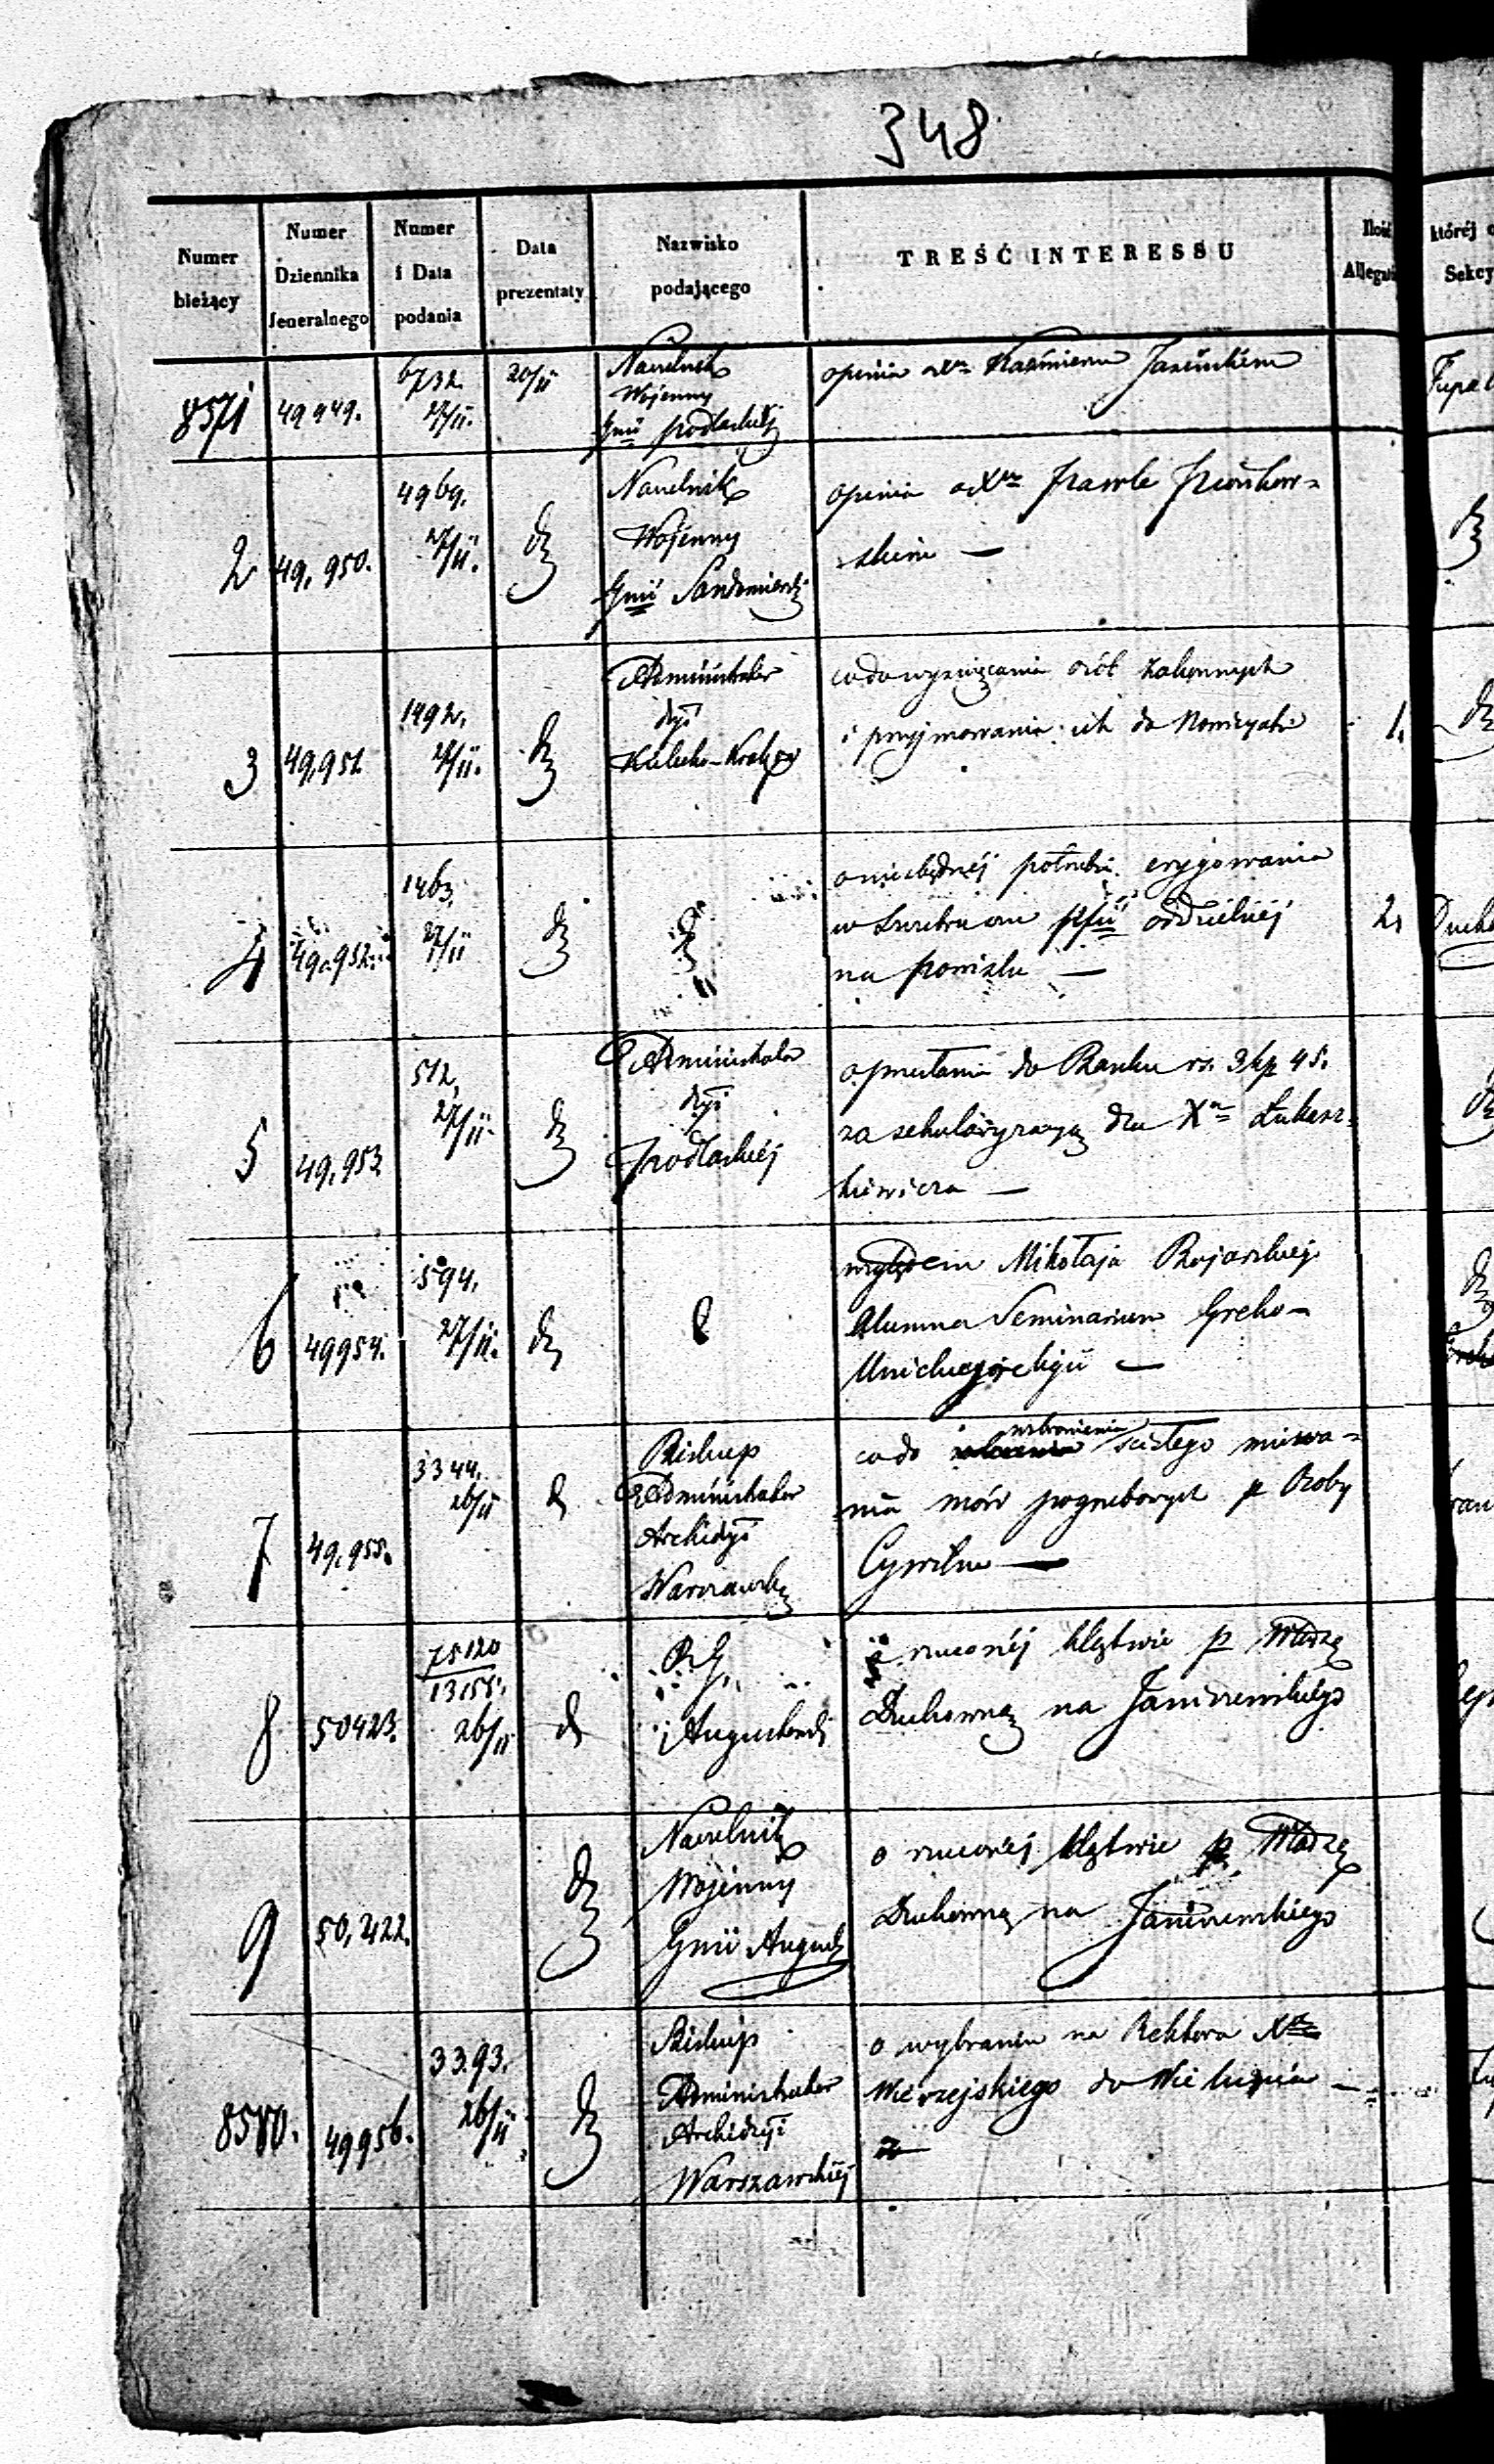 348
Numer bieżący
Numer Dziennika Jeneralnego
Numer i Data podania
Data prezentaty
Nazwisko podającego
TREŚĆ INTERESSU
Ilość
której
Sekcy
8571 49949. 6732 27/11. 20/11 Naczelnik
Wojenny
Gnii podlaskiej
opinia o Xu Kazimierzu
2 49,950. 4969. 27/11. Naczelnik
Wojenny
Gnii Sandomiersk
opinia o Xu Pawle
skim —
3 49,951. 1492. 27/11. Administrator
dyi
Kielecko-Krakow
co do wyświęcania osób zakonnych
i przyjmowania ich do Nowicyatu
1.
4 49,952. 1463. 27/11
o niezbędnéj potrzebie erygowania
oddzielnéj
na powiślu —
2.
5 49,953. 512, 27/11. Administrator
dyi
podlaskiéj
o przesłaniu do Banku rs. 3 kp 45.
za sekularyzacyą dla Xa Łukasz-
kiewicza —
6 49954. 594. 27/11.
względem Mikołaja Bojarskiego
Alumna Seminarium Greko-
Unickiego religii —
7 49,955. 3344. 26/11 Biskup
Administrator
Archidyi
Warszawsk
co do wzbronienia miewa-
nia mów pogrzebowych p Osoby
Cywilne —
8 50423. 75120
13155. 26/11 R.G.
Augustowsk
o rzuconéj klątwie p Władzę
Duchowną na Janiszewskiego
9 50,422. Naczelnik
Wojenny
Gnii August
o rzuconéj klątwie p Władzę
Duchowną na Janiszewskiego
8580. 49956. 3393. 26/11 Biskup
Administrator
Archidyi
Warszawskiéj
o wybraniu na Rektora Xa
Wierzejskiego do Wielunia —